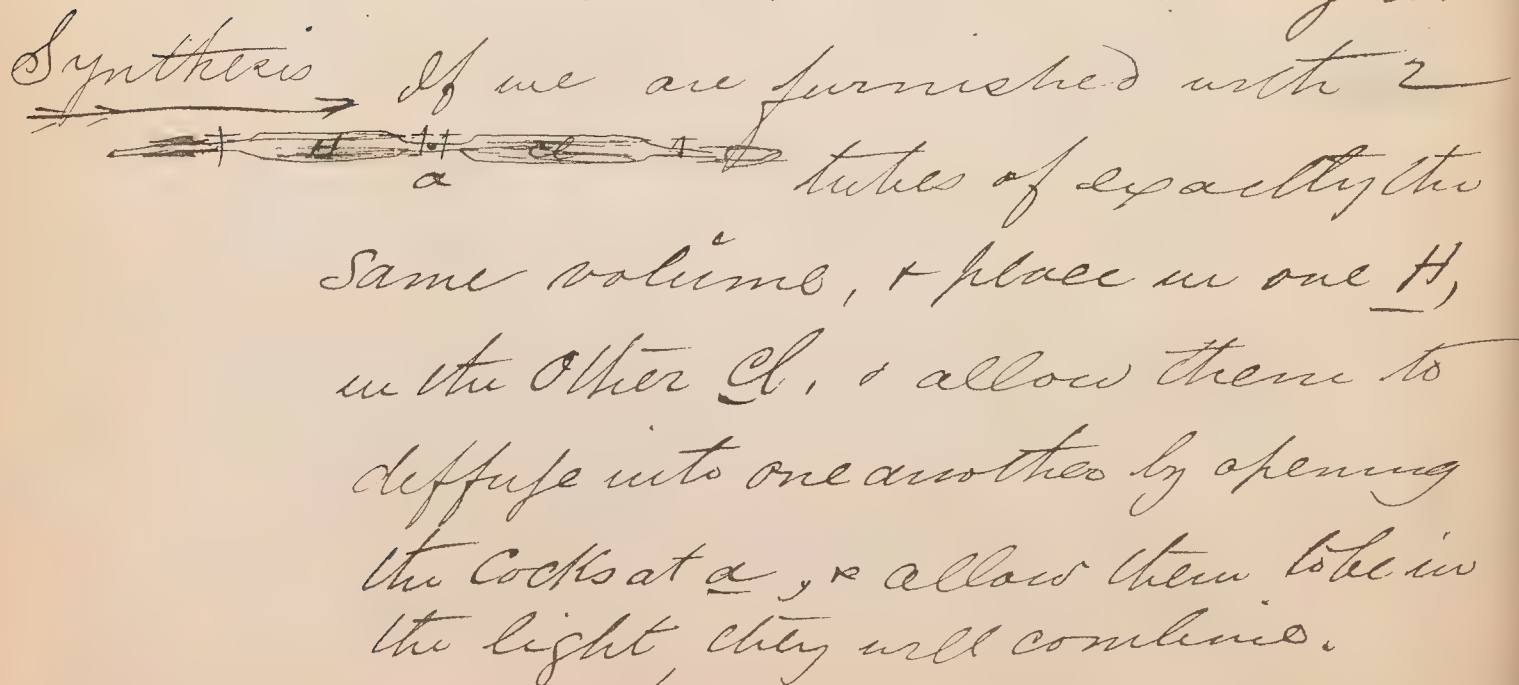 Synthesis If we are furnished with 2
H Cl
a
tubes of exactly the
same volume, & place in one H,
in the Other Cl, & allow them to
diffuse into one another by opening
the Cocks at a, & allow them to be in
the light, they will combine.